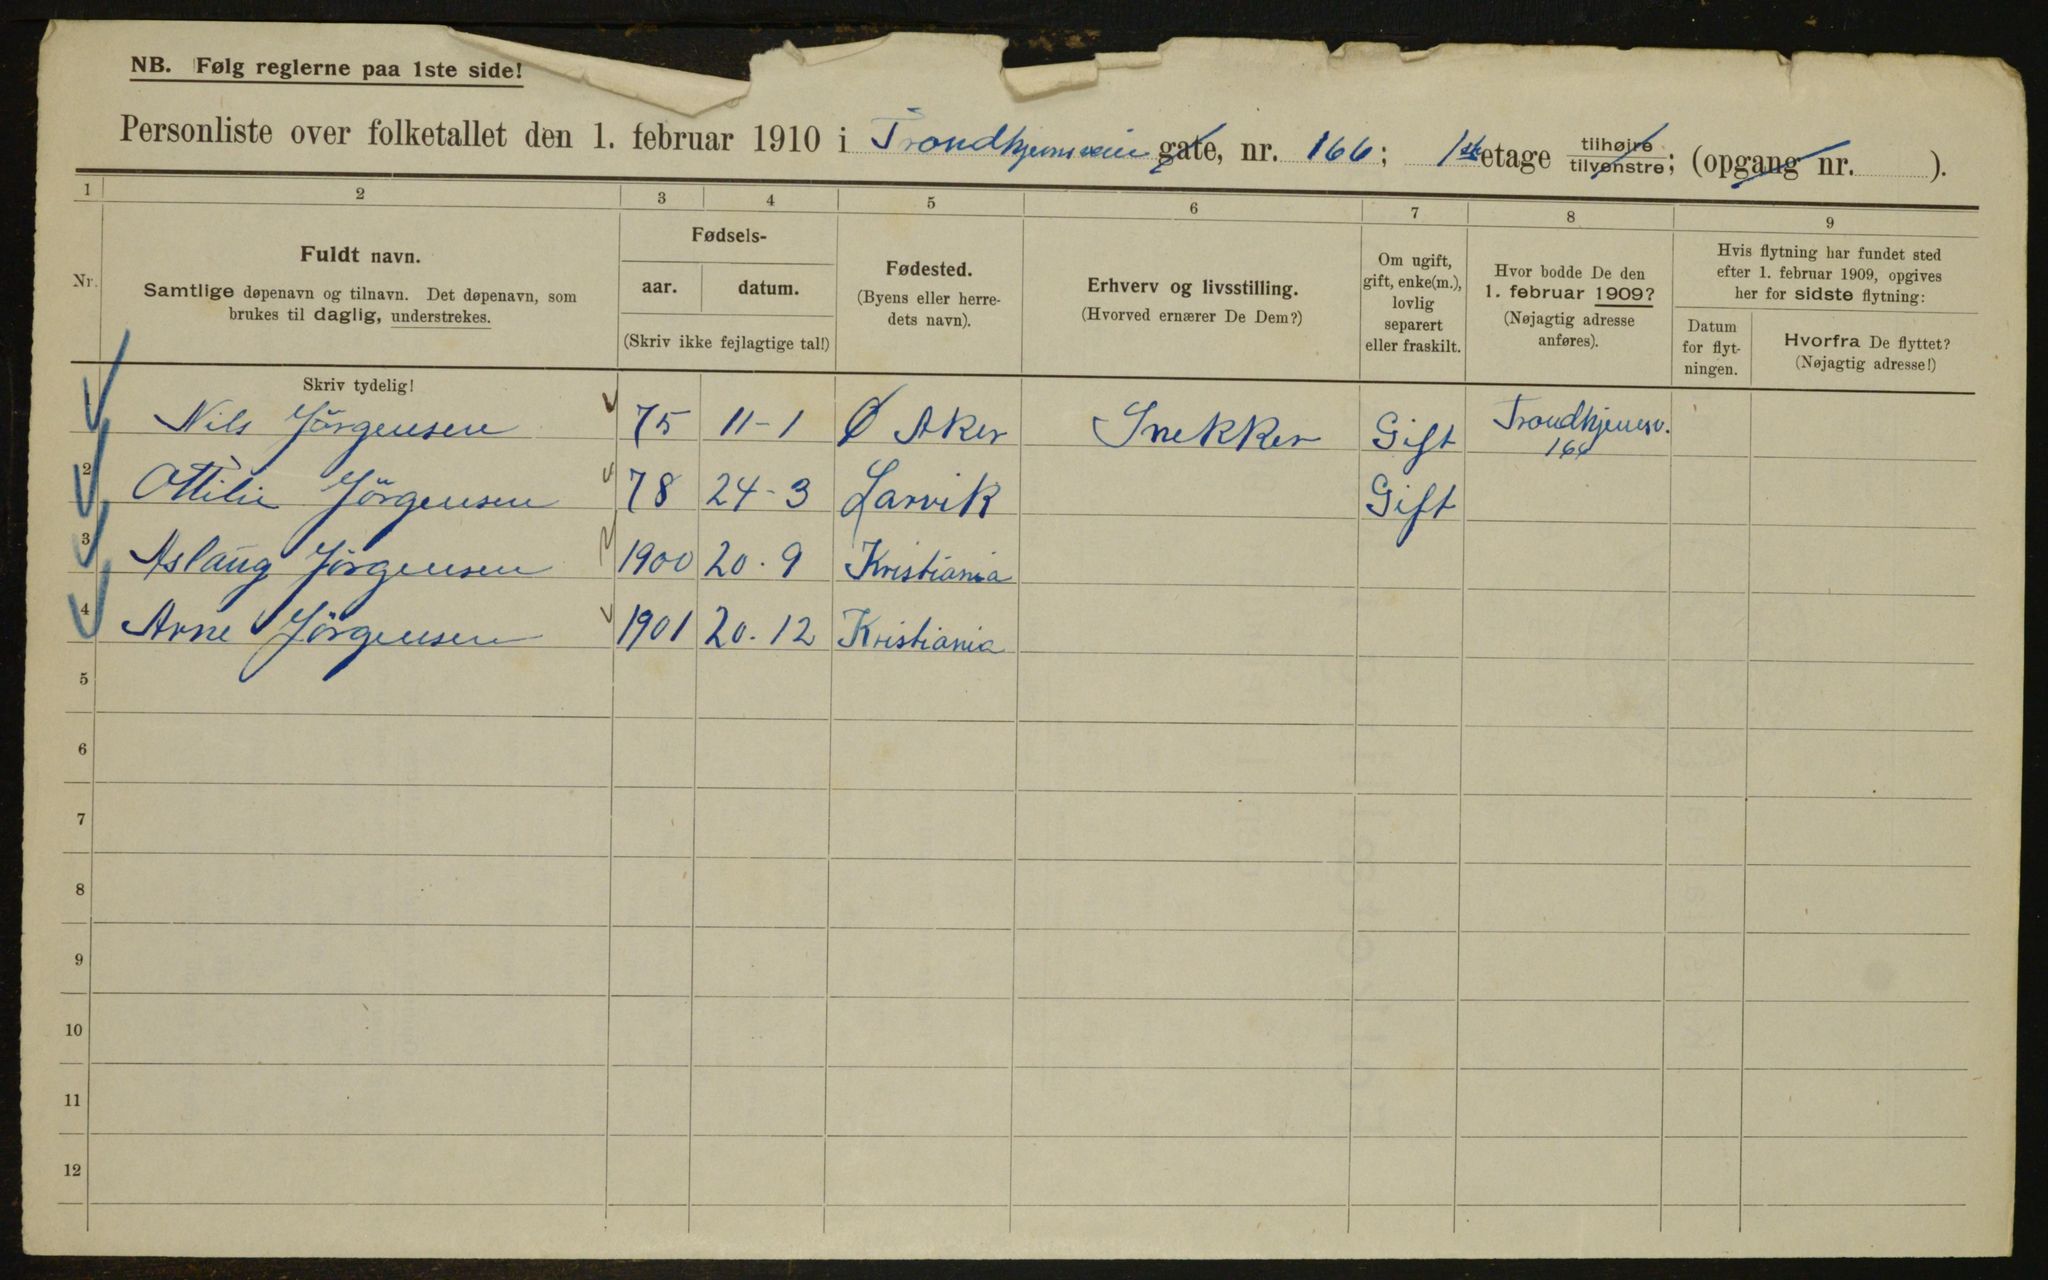 NB. Følg reglerne paa 1ste side!
Personliste over folketallet den 1. februar 1910 i Trondhjemsveien gate, nr. 166; 1ste etage tilhøire tilvenstre; (opgang nr. ).
1 2 3 4 5 6 7 8 9
Nr.
Fuldt navn.
Samtlige døpenavn og tilnavn. Det døpenavn, som
brukes til daglig, understrekes.
Skriv tydelig!
Fødsels-
aar. datum.
(Skriv ikke fejlagtige tal!)
Fødested.
(Byens eller herre-
dets navn).
Erhverv og livsstilling.
(Hvorved ernærer De Dem?)
Om ugift,
gift, enke(m.),
lovlig
separert
eller fraskilt.
Hvor bodde De den
1. februar 1909?
(Nøjagtig adresse
anføres).
Hvis flytning har fundet sted
efter 1. februar 1909, opgives
her for sidste flytning:
Datum
for flyt-
ningen.
Hvorfra De flyttet?
(Nøjagtig adresse!)
1 Nils Jörgensen 75 11-1 Ø Aker Snekker Gift Trondhjemsv.
166
2 Ottilie Jörgensen 78 24-3 Larvik Gift
3 Aslaug Jörgensen 1900 20.9 Kristiania
4 Arne Jörgensen 1901 20.12 Kristiania
5
6
7
8
9
10
11
12